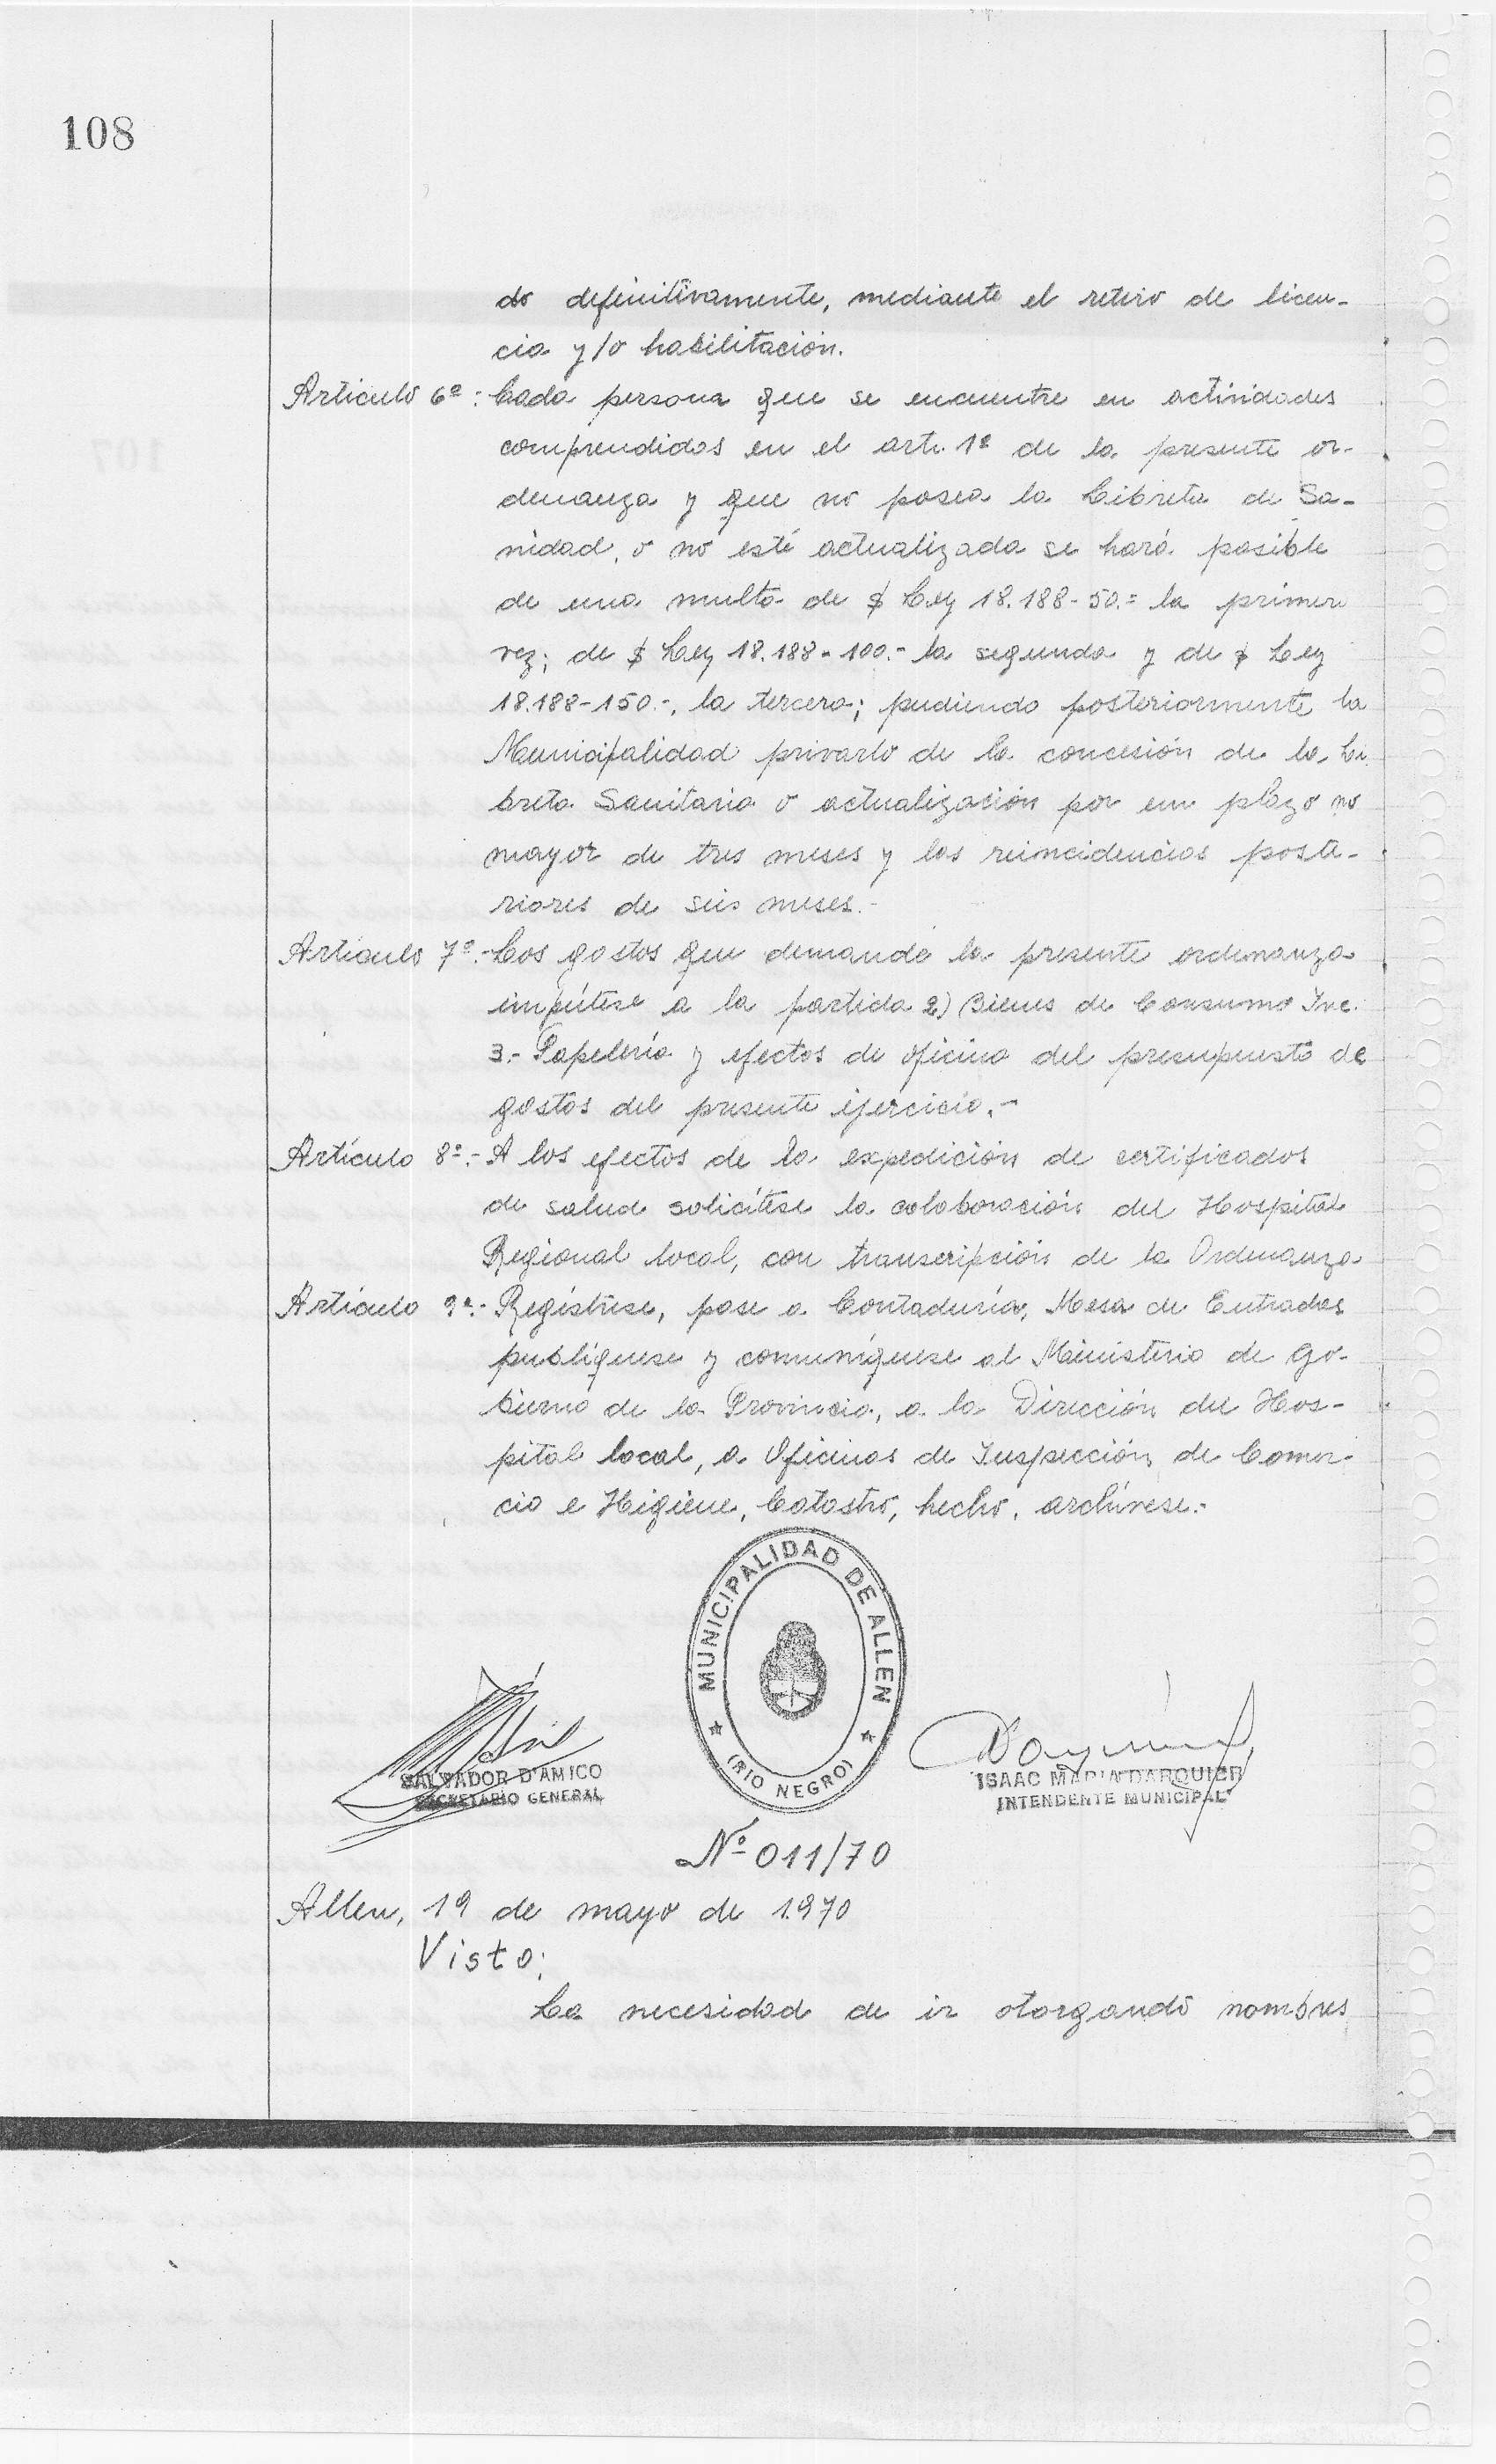 108
do definitivamente, mediante el retiro de licen-
cia y/o habilitación.
Artículo 6º: Cada persona que se encuentre en actividades
comprendidas en el art. 1º de la presente or-
denanza y que no posea la Libreta de Sa-
nidad, o no esté actualizada se hará pasible
de una multa de $ Ley 18.188-50.= la primera
vez; de $ Ley 18.188-100.- la segunda y de $ Ley
18.188-150.-, la tercera; pudiendo posteriormente la
Municipalidad privarlo de la concesión de la Li-
breta Sanitaria o actualización por un plazo no
mayor de tres meses y las reincidencias poste-
riores de seis meses.-
Artículo 7º.- Los gastos que demande la presente ordenanza
impútese a la partida 2) Bienes de Consumo Inc.
3.- Papelería y efectos de oficina del presupuesto de
gastos del presente ejercicio.-
Artículo 8º.- A los efectos de la expedición de certificados
de salud solicítese la colaboración del Hospital
Regional local, con transcripción de la Ordenanza
Artículo 9º.- Regístrese, pase a Contaduría, Mesa de Entradas
publíquese y comuníquese al Ministerio de Go-
bierno de la Provincia, a la Dirección del Hos-
pital local, a Oficinas de Inspección de Comer-
cio e Higiene, Catastro, hecho, archívese.-
MUNICIPALIDAD DE ALLEN
(RIO NEGRO)
SALVADOR D'AMICO
SECRETARIO GENERAL
ISAAC MARIA DARQUIER
INTENDENTE MUNICIPAL
Nº 011/70
Allen, 19 de mayo de 1.970
Visto:
La necesidad de ir otorgando nombres